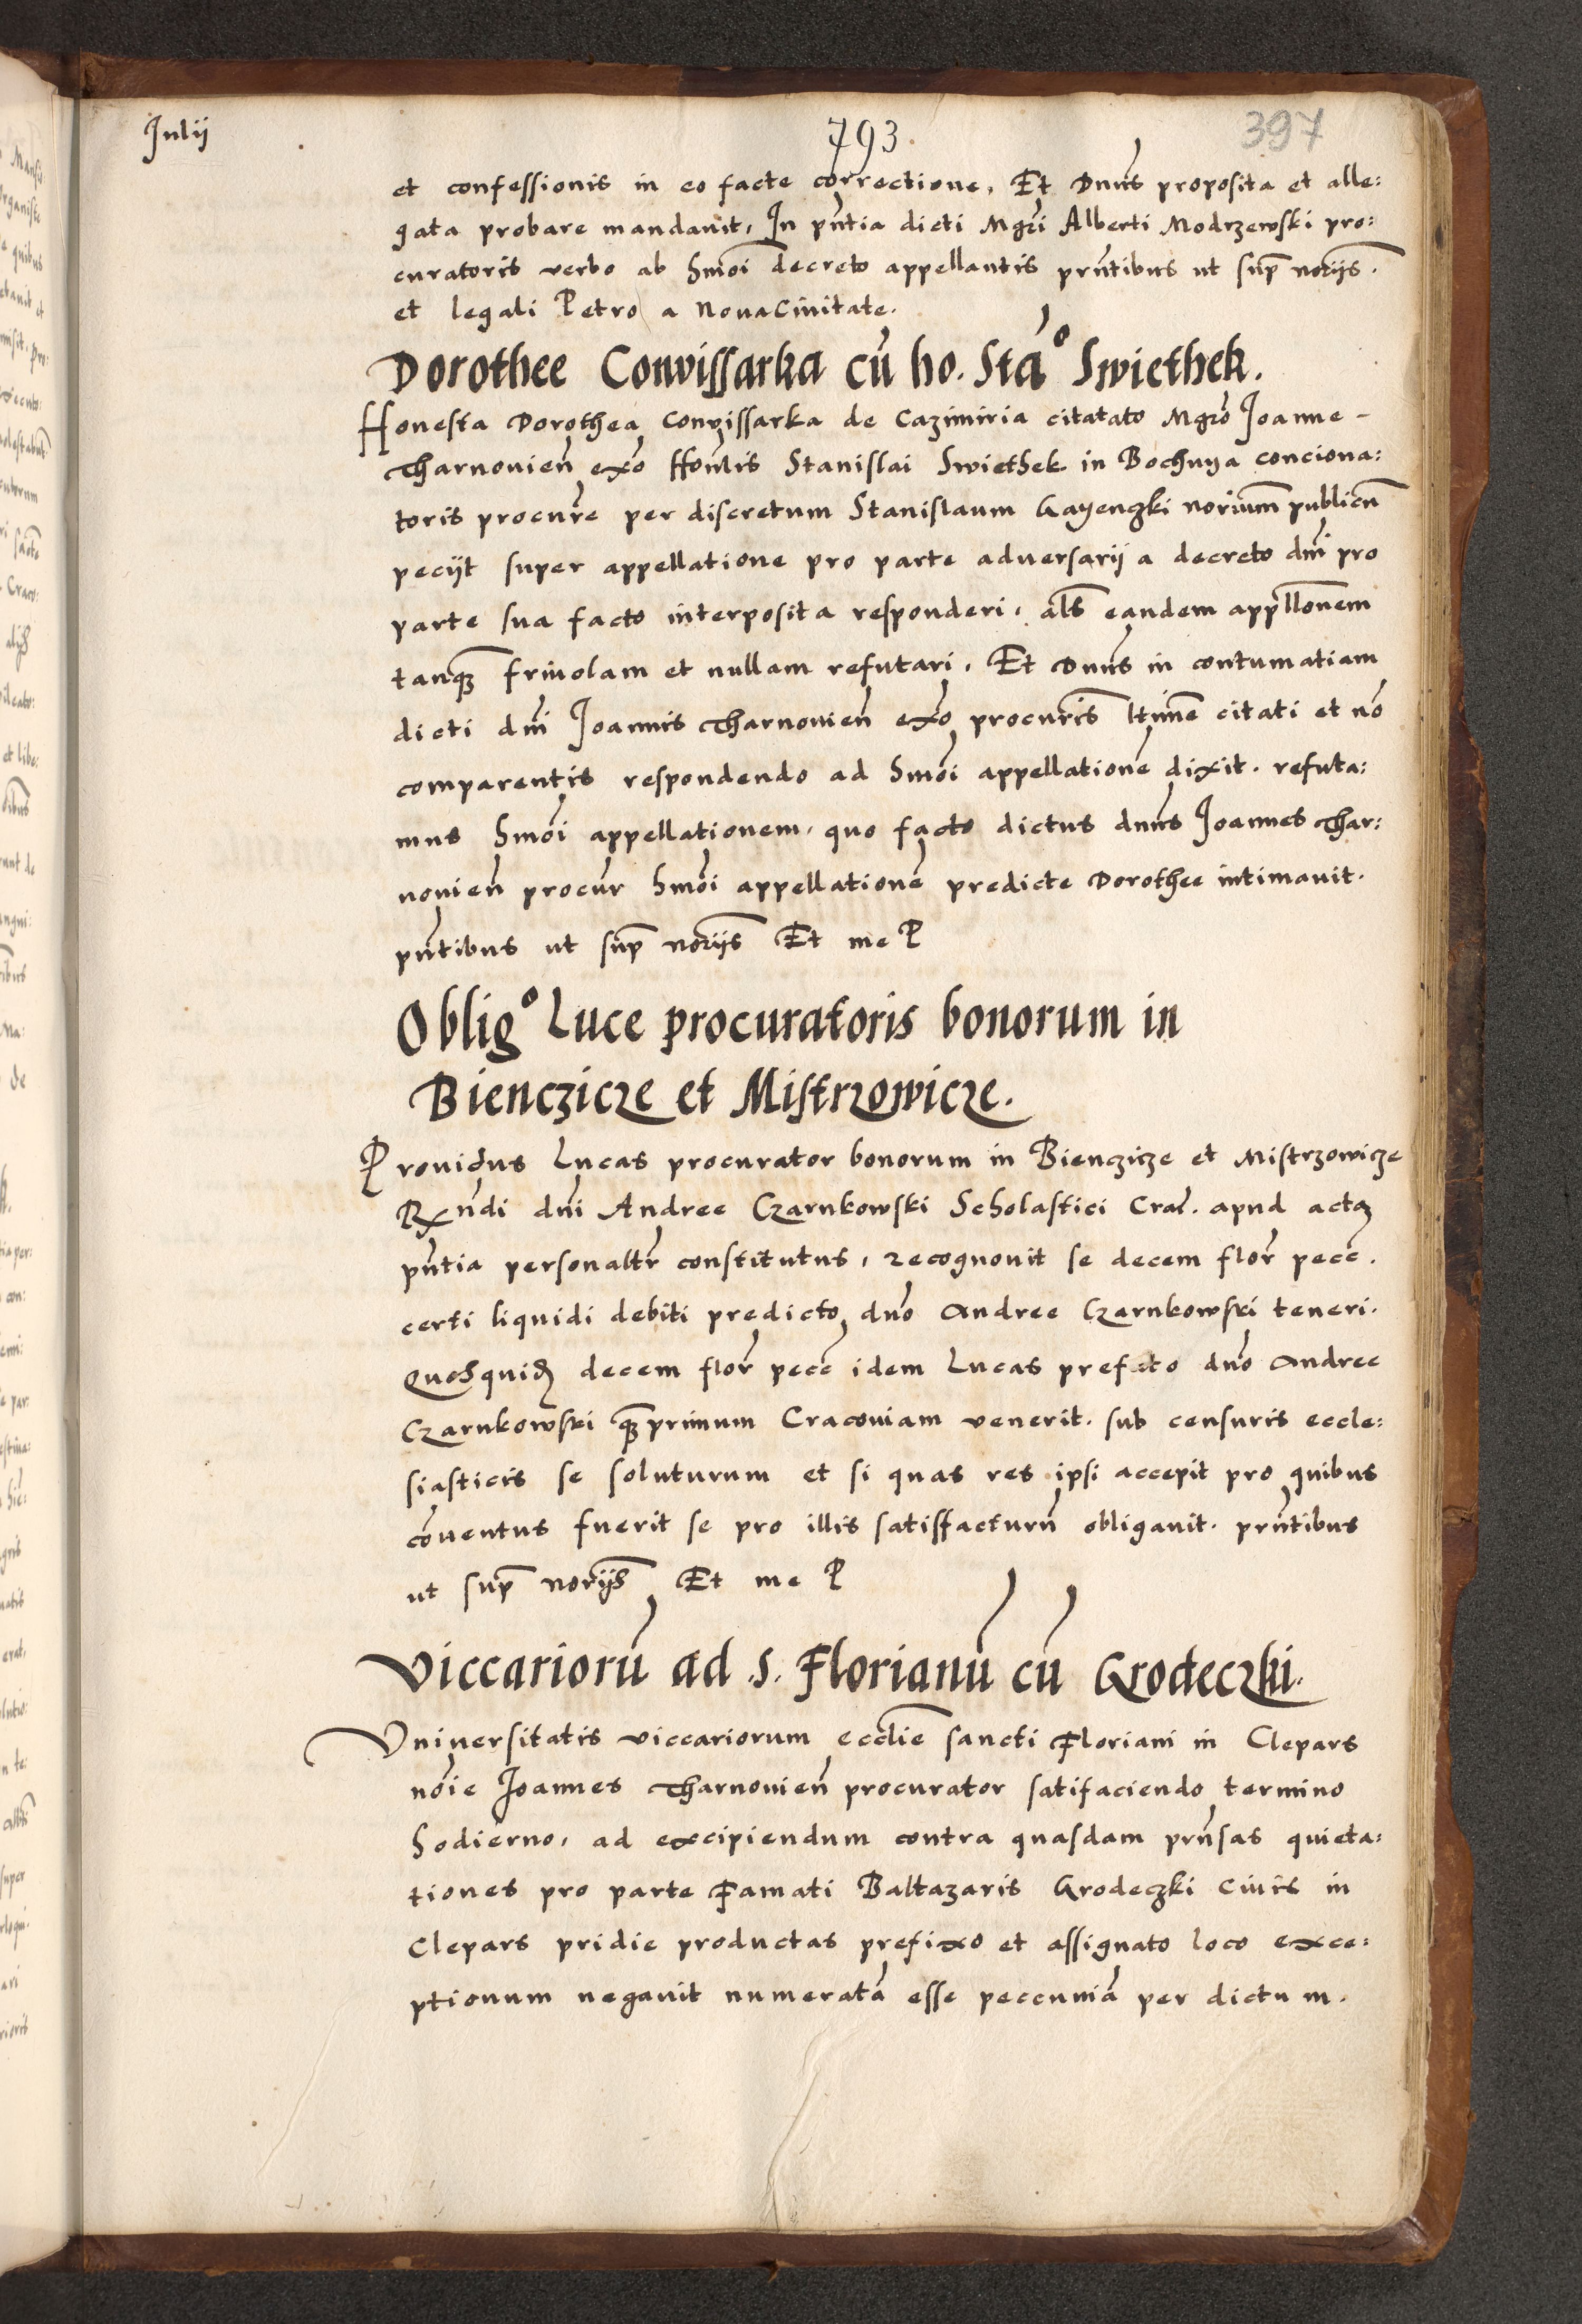 Julii
793
397
et confessionis in eo facte correctione, Et Dnūs proposita et alle:
gata probare mandauit, In pn̄tia dicti Mgr̄i Alberti Modrzewski pro:
curatoris verbo ab hmōi decreto appellantis prn̄tibus ut sup̄ nor̄ijs.
et legali Petro a NouaCiuitate.
Dorothee Conwissarka cū ho. Stā° Swiethek.
Honesta Dorothea Conwissarka de Cazimiria citatato Mgrō Joanne -
Tharnouien̄ exō Hon̄lis Stanislai Swiethek in Bochnya conciona:
toris procur̄e per discretum Stanislaum Gayenczki norium̄ publicū
peciit super appellatione pro parte aduersarij a decreto dn̄i pro
parte sua facto interposita responderi, al̄s eandem app̄llonem
tanq̄ friuolam et nullam refutari. Et Dnūs in contumatiam
dicti dn̄i Joannis Tharnouien̄ exō procur̄is ltīme citati et nō
comparentis respondendo ad hmōi appellationē dixit. refuta:
mus hmōi appellationem, quo facto dictus dnūs Joannes Thar:
nouien̄ procur̄ hmōi appellationē predicte Dorothee intimauit.
pn̄tibus ut sup̄ nor̄ijs Et me P
Oblig° Luce procuratoris bonorum in
Bienczicze et Mistrzowicze.
Prouidus Lucas procurator bonorum in Bienczicze et Mistrzowicze
Rn̄di dn̄i Andree Czarnkowski Scholastici Crac̄. apud acta
pn̄tia personaltr̄ constitutus, recognouit se decem flor̄ pecc̄.
certi liquidi debiti predicto dnō Andree Czarnkowski teneri.
Quosquidꝫ decem flor̄ pecc̄ idem Lucas prefato dnō Andree
Czarnkowski q̄primum Cracouiam venerit. sub censuris eccle:
siasticis se soluturum et si quas res ipsi accepit pro quibus
cōuentus fuerit se pro illis satisfacturū obligauit. prn̄tibus
ut sup̄ nor̄ijs Et me P
Viccariorū ad .S. Florianū cū Grodeczki.
Vniuersitatis viccariorum eccl̄ie sancti Floriani in Clepars
nōie Joannes Tharnouien̄ procurator satifaciendo termino
hodierno, ad excipiendum contra quasdam prn̄sas quieta:
tiones pro parte Famati Baltazaris Grodeczki Ciuis in
Clepars pridie productas prefixo et assignato loco exce:
ptionum negauit numeratā esse peccuniā per dictum.